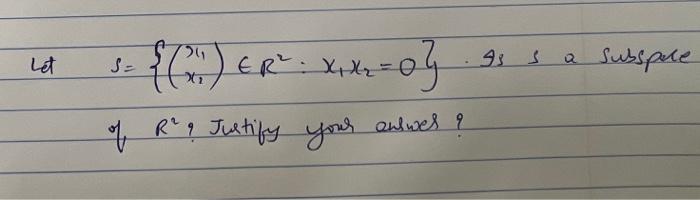 Let S = {(x₁ x₂) ∈ R² : x₁x₂ = 0}. Is S a subspace
of R²? Justify your answer?